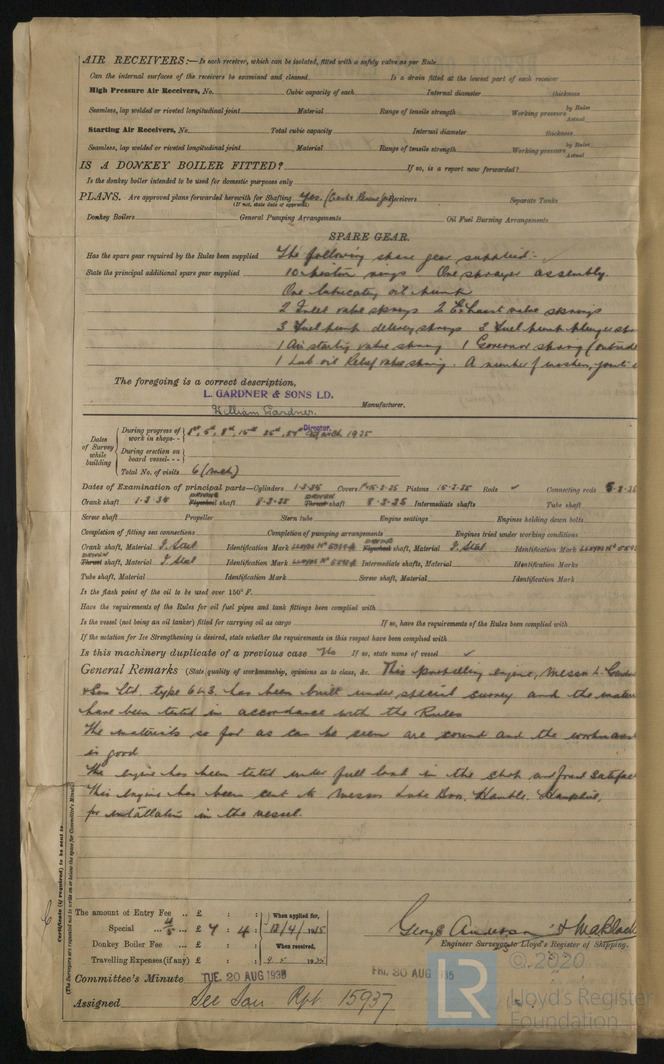 AIR RECEIVERS:—Is each receiver, which can be isolated, fitted with a safety valve as per Rule
Can the internal surfaces of the receivers be examined and cleaned Is a drain fitted at the lowest part of each receiver
High Pressure Air Receivers, No. Cubic capacity of each Internal diameter thickness
Seamless, lap welded or riveted longitudinal joint Material Range of tensile strength Working pressure by Rules Actual
Starting Air Receivers, No. Total cubic capacity Internal diameter thickness
Seamless, lap welded or riveted longitudinal joint Material Range of tensile strength Working pressure by Rules Actual
IS A DONKEY BOILER FITTED? If so, is a report now forwarded?
Is the donkey boiler intended to be used for domestic purposes only
PLANS. Are approved plans forwarded herewith for Shafting Yes. Receivers Separate Tanks
(If not, state date of approval)
Donkey Boilers General Pumping Arrangements Oil Fuel Burning Arrangements
SPARE GEAR.
Has the spare gear required by the Rules been supplied The following spare gear supplied:- ✓
State the principal additional spare gear supplied 10 piston rings One sprayer assembly.
One lubricating oil pump
2 Inlet valve springs 2 Exhaust valve springs
3 Fuel pump delivery springs 3 Fuel pump plunger
1 Air starting valve spring 1 Governor spring (outside
1 Lub oil Relief valve spring. A number of washers, joints
The foregoing is a correct description,
L. GARDNER & SONS LD.
William Gardner. Manufacturer.
Director.
Dates of Survey while building
During progress of work in shops-- March 1935
During erection on board vessel---
Total No. of visits 6
Dates of Examination of principal parts—Cylinders 1-3-35 Covers Pistons 15-3-35 Rods ✓ Connecting rods
Crank shaft Flywheel shaft 8-3-35 Thrust shaft 8-3-35 Intermediate shafts Tube shaft
Screw shaft Propeller Stern tube Engine seatings Engines holding down bolts
Completion of fitting sea connections Completion of pumping arrangements Engines tried under working conditions
Crank shaft, Material S. Steel Identification Mark Flywheel shaft, Material S. Steel Identification Mark
Thrust shaft, Material S. Steel Identification Mark Intermediate shafts, Material Identification Marks
Tube shaft, Material Identification Mark Screw shaft, Material Identification Mark
Is the flash point of the oil to be used over 150° F.
Have the requirements of the Rules for oil fuel pipes and tank fittings been complied with
Is the vessel (not being an oil tanker) fitted for carrying oil as cargo If so, have the requirements of the Rules been complied with
If the notation for Ice Strengthening is desired, state whether the requirements in this respect have been complied with
Is this machinery duplicate of a previous case No If so, state name of vessel ✓
General Remarks (State quality of workmanship, opinions as to class, &c. This propelling engine, Messrs L. Gardner
& Son Ltd. type 6L3. has been built under special survey and the
have been tested in accordance with the Rules
The materials so far as can be seen are sound and the
is good
The engine has been tested under full load in the shop and found
This engine has been sent to Messrs Luke Bros. Hamble. Hampshire,
for installation in the vessel.
Certificate (if required) to be sent to
(The Surveyors are requested not to write on or below the space for Committee's Minute.)
The amount of Entry Fee .. £ : : When applied for,
Special 4/5 ... £ 7 : 4 : /4/1935
Donkey Boiler Fee ... £ : : When received,
Travelling Expenses (if any) £ : : 9.5 1935
George Anderson
Engineer Surveyor to Lloyd's Register of Shipping.
Committee's Minute TUE. 20 AUG 1935 FRI. 30 AUG 1935
Assigned See Sou Rpt 15937
LR
© 2020
Lloyd's Register
Foundation